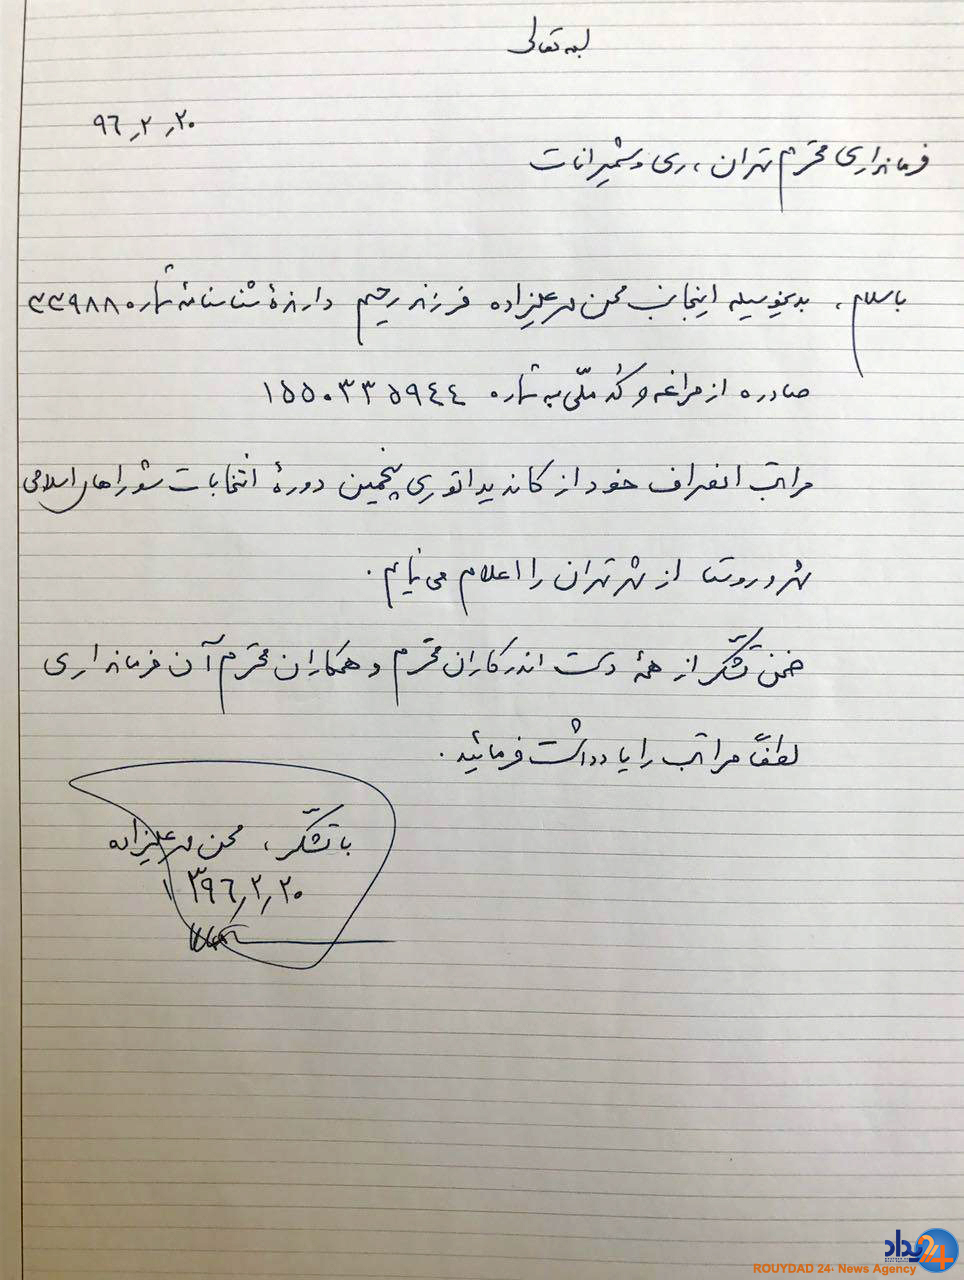 بسمه تعالی
۹۶٫۲٫۲۰
فرمانداری محترم تهران ، ری و شمیرانات
با سلام ، بدینوسیله اینجانب محسن مهرعلیزاده فرزند رحیم دارندهٔ شناسنامهٔ شماره ۳۳۹۸۸
صادره از مراغه و کُد ملّی به شماره ۱۵۵۰۳۳۵۹۴۴
مراتب انصراف خود از کاندیداتوری پنجمین دورهٔ انتخابات شوراهای اسلامی
شهر و روستا از شهر تهران را اعلام می نمایم .
ضمن تشکّر از همهٔ دست اندرکاران محترم و همکاران محترم آن فرمانداری
لطفاً مراتب را یادداشت فرمائید .
با تشکّر ، محسن مهرعلیزاده
۱۳۹۶٫۲٫۲۰
رویداد24
ROUYDAD 24- News Agency